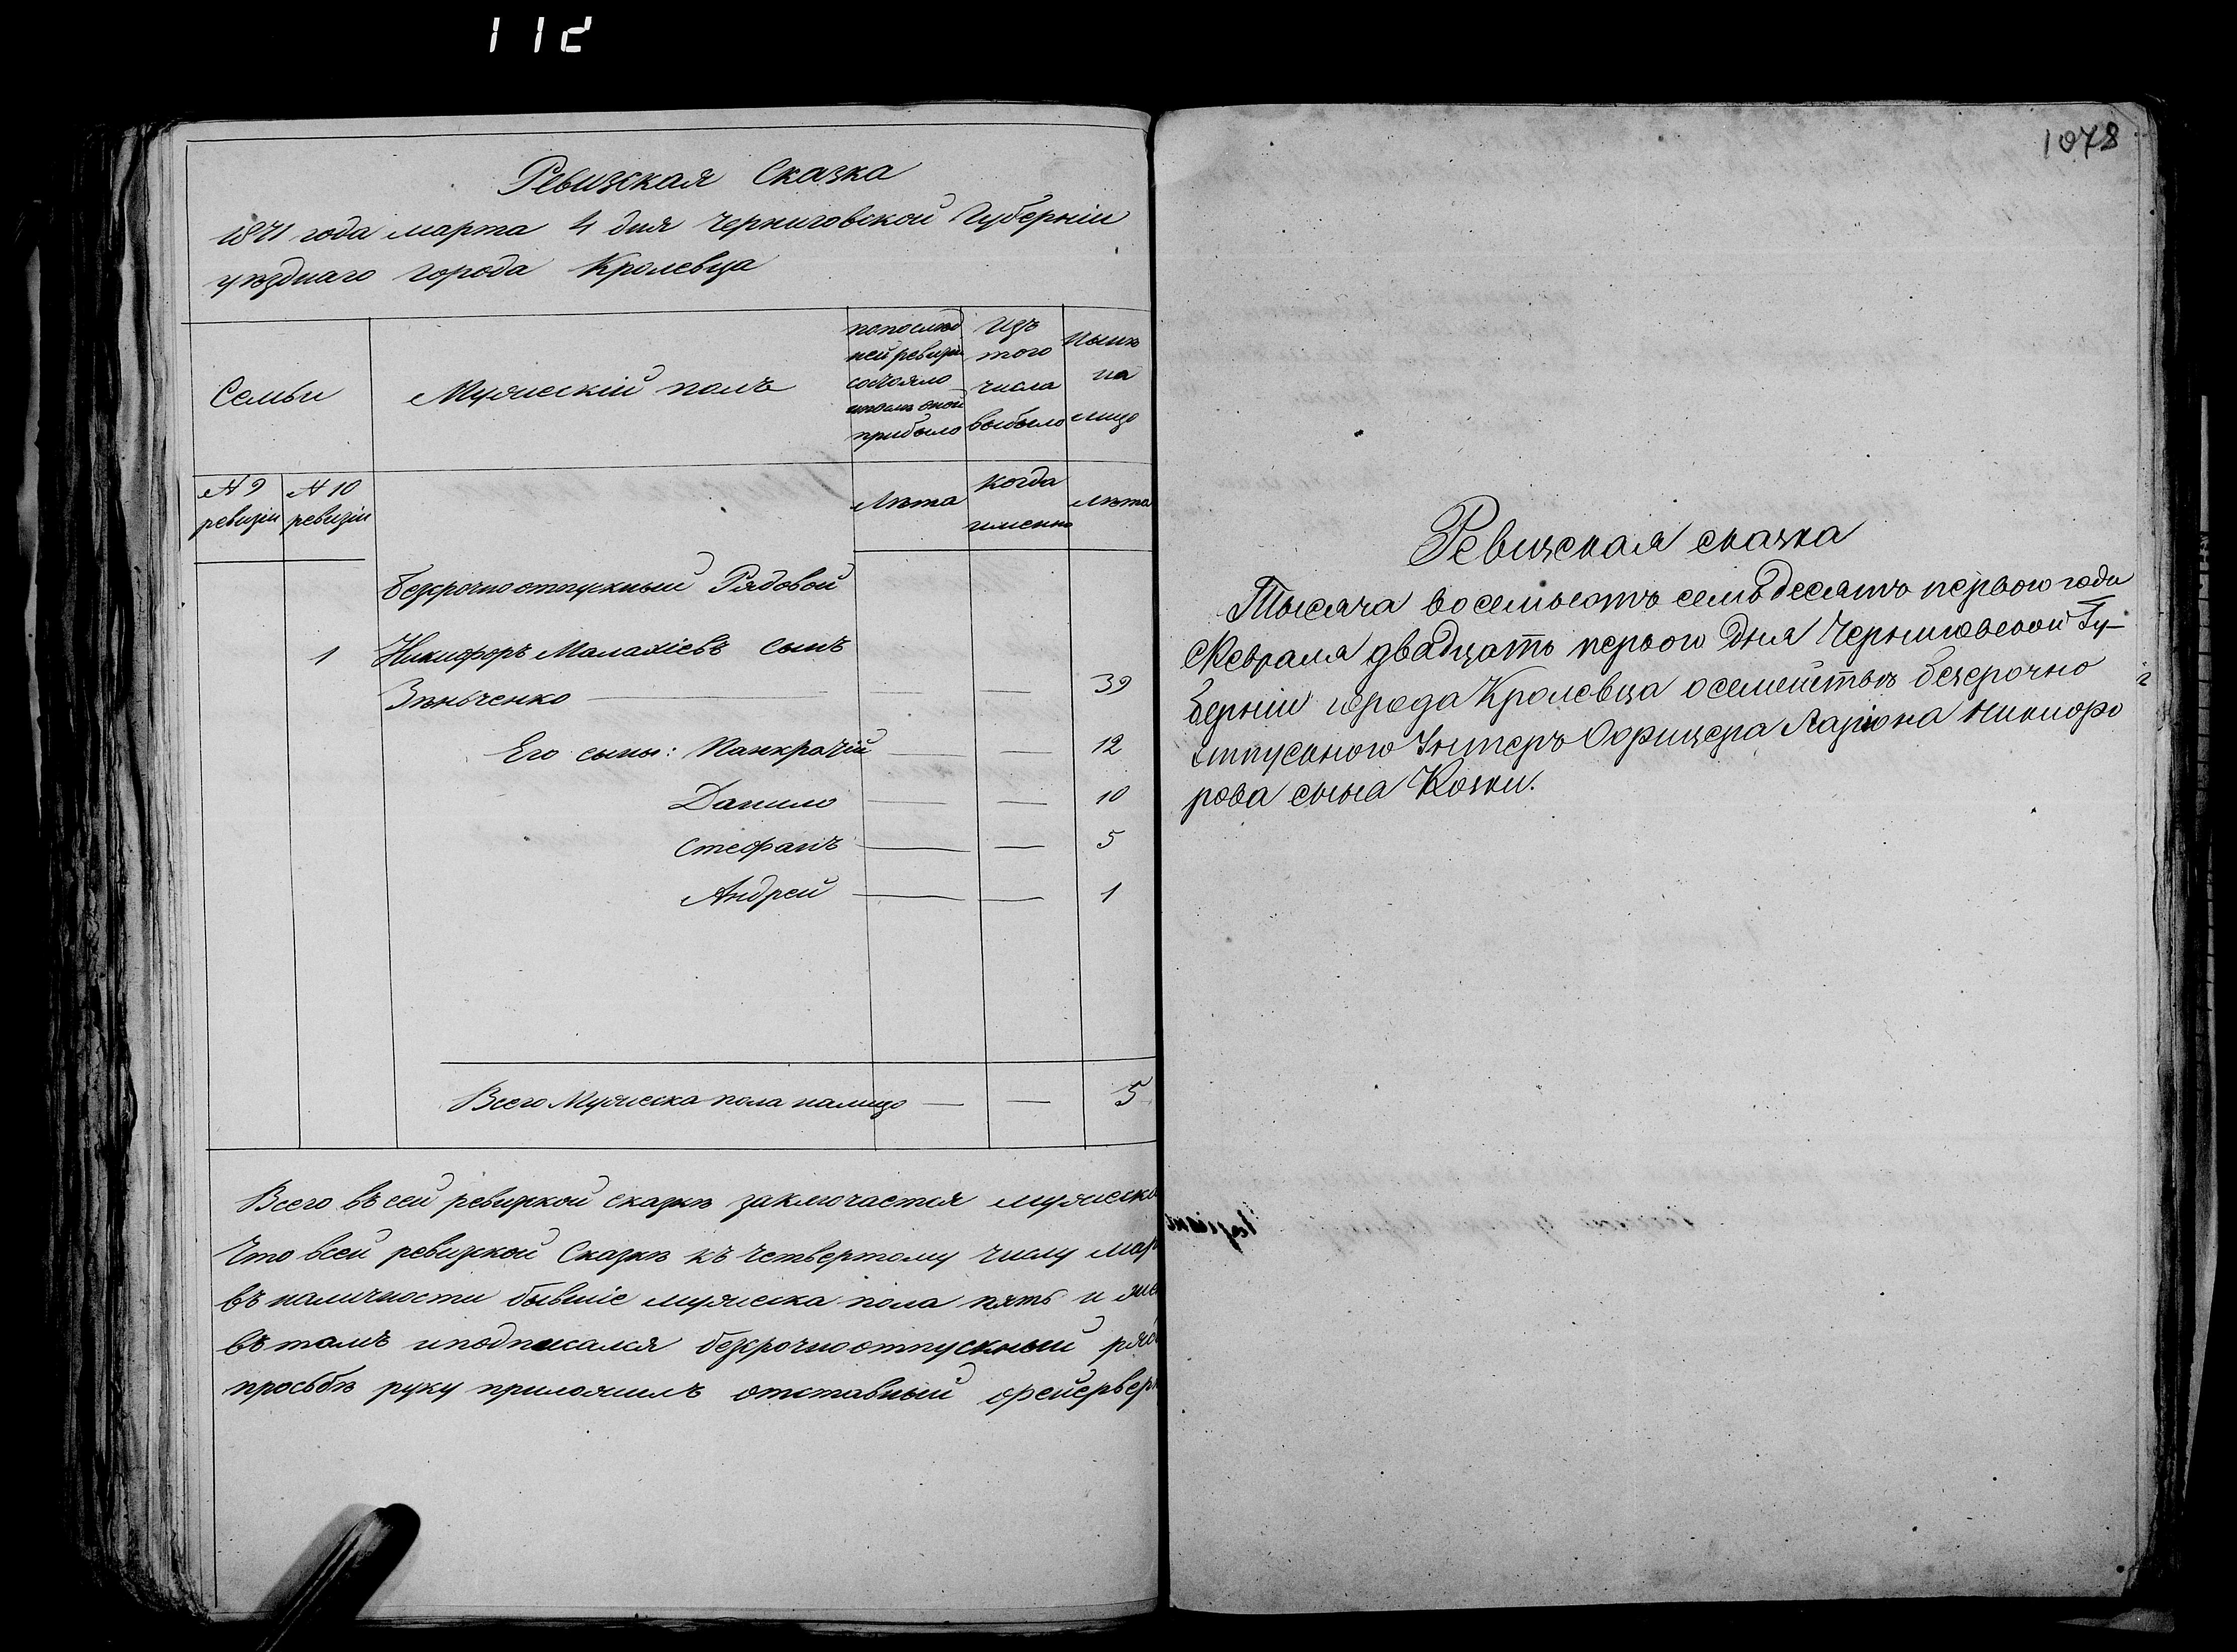 112
Ревизская Сказка
1871 года марта 4 дня Черниговской Губерніи
уѣзднаго города Кролевца
Семьи
Мужескій полъ
попослѣд
ней ревизіи
состояло
прибыло
Изъ
того
числа
выбыло
Нынѣ
на
лицо
№ 9
ревизіи
№ 10
ревизіи
Лѣта
Когда
именно
Лѣта
Безсрочноотпускный Рядовой
1 Никифоръ Малахіевъ сынъ
Зѣньченко — — 39
Его сыны: Панкратій — — 12
Данило — — 10
Стефанъ — — 5
Андрей — — 1
Всего Мужеска пола налицо — — 5
Всего въ сей ревизкой сказкѣ заключается мужеска
Что всей ревизкой Сказкѣ къ четвертому числу мар
въ наличности бывшіе мужеска пола пять и
въ томъ и подписался безсрочноотпускный ряд
просьбѣ руку приложилъ отставный фейервер
1078
Ревизская сказка
Тысяча восемьсотъ семьдесятъ первого года
Февраля двадцать первого дня Черниговской Гу-
берніи города Кролевца осемействѣ безсрочно
отпускного Унтеръ Офицера Ларіона Никифо
рова сына Козки.